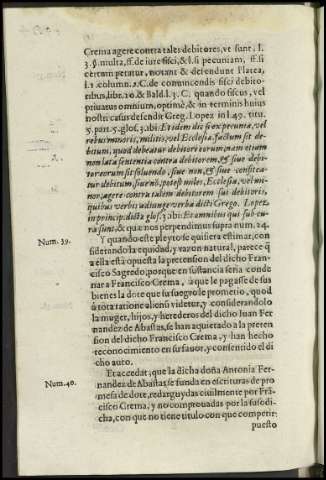 Crema agere contra tales debitores, vt sunt, l.
3. §. multa, ff. de iure fisci, & l. si pecuniam, ff. si
certum petatur, notant & defendunt Platea,
l. 1. column. 2. C. de conuincendis fisci debito-
ribus, libr. 10. & Bald. l. 3. C. quando fiscus, vel
priuatus omnium, optimè, & in terminis huius
nostri casus defendit Greg. Lopez in l. 49. titu.
5. part. 5. glos. 3. ibi: Et idem dic si ex pecunia, vel
rebus minoris, militis, vel Ecclesiæ, factum sit de-
bitum, quod debeatur debitori eorum, nam etiam
non lata sententia contra debitorem, & siue debi-
tor eorum sit soluendo, siue non, & siue confitea-
tur debitum, siue nõ, potest miles, Ecclesia, vel mi-
nor, agere contra talem debitorem sui debitoris,
quibus verbis adiunge verba dicti Grego. Lopez
in princip. dicta glos. 3. ibi: Et omnibus qui sub cu-
ra sunt, & quæ nos perpendimus supra num. 24.
Num. 39.
Y quando este pleyto se quisiera estimar, con
siderando la equidad, y razon natural, parece q̃
a ella està opuesta la pretension del dicho Fran-
cisco Sagredo, porque en sustancia seria conde
nar a Francisco Crema, à que le pagasse de sus
bienes la dote que su suegro le prometio, quod
à tota ratione alienũ videtur, y considerandolo
la muger, hijos, y herederos del dicho Iuan Fer
nandez de Abastas, se han aquietado a la preten
sion del dicho Francisco Crema, y han hecho
reconocimiento en su fauor, y consentido el di-
cho auto.
Num. 40.
Et accedat; que la dicha doña Antonia Fer-
nandez de Abastas, se funda en escrituras de pro
mesa de dote, redarguydas ciuilmente por Frã-
cisco Crema, y no comprouadas por la susodi-
cha, con que no tiene titulo con que competir:
puesto